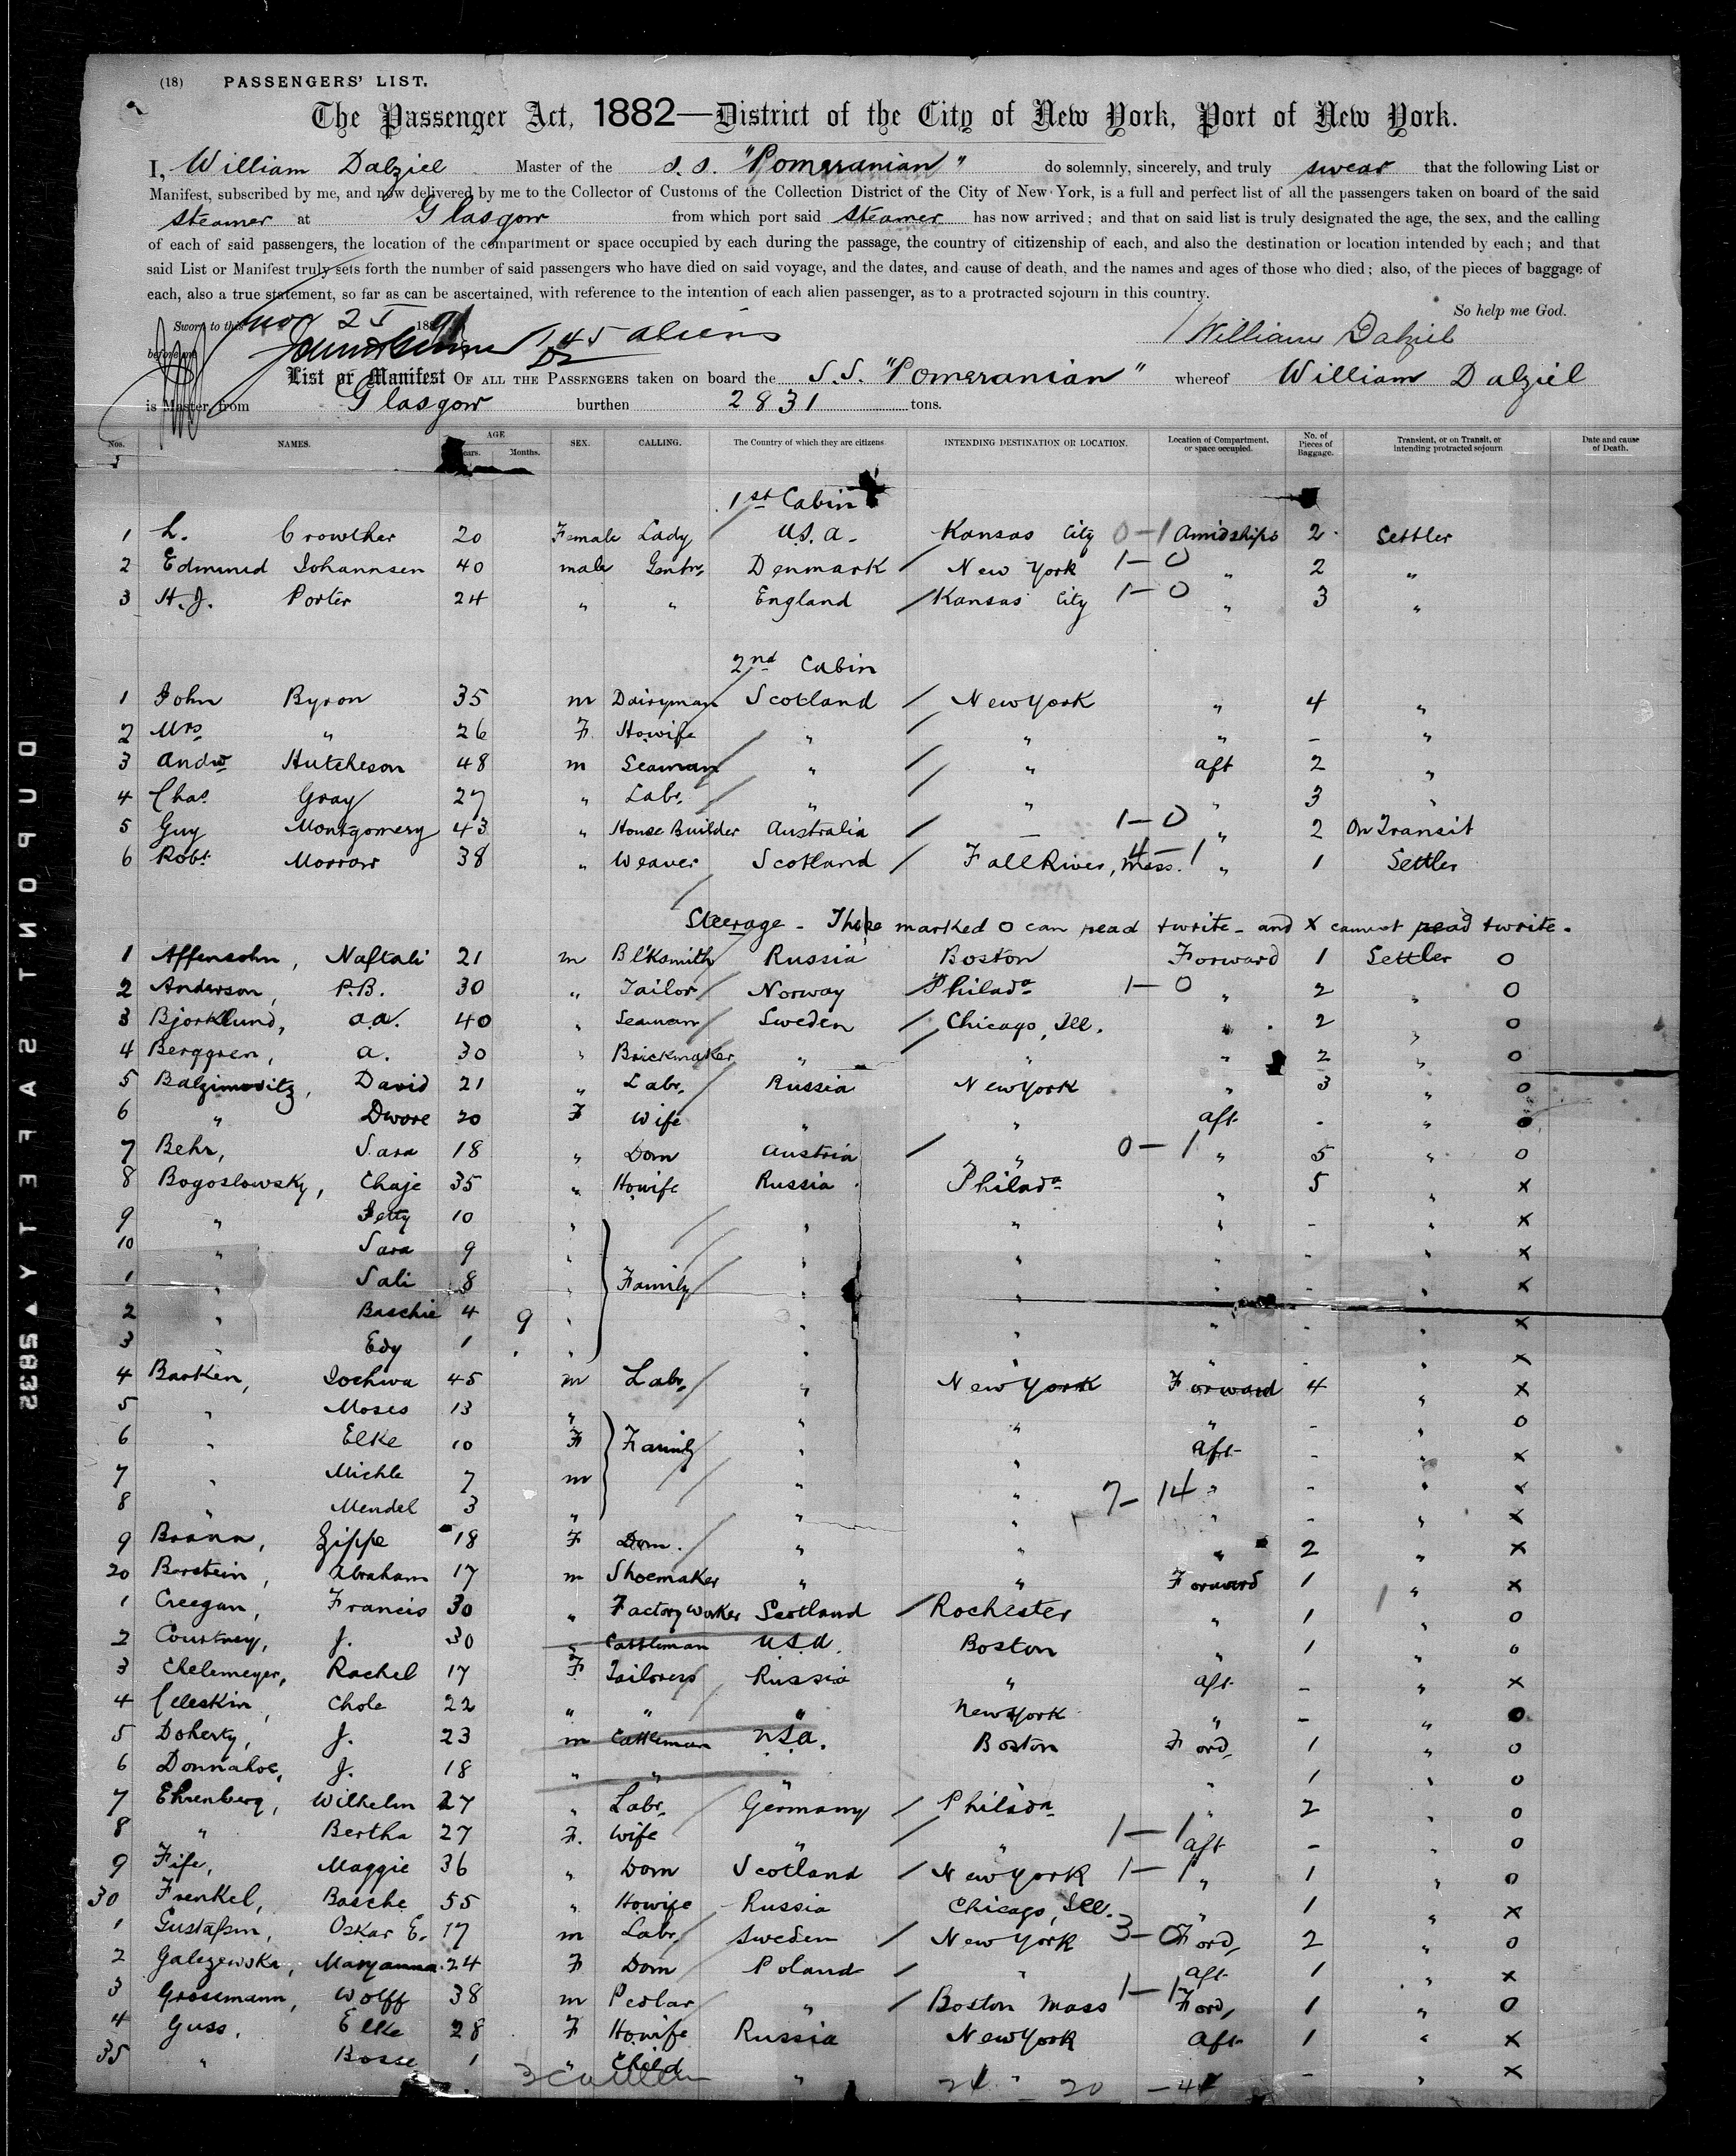 (18) PASSENGERS' LIST.
The Passenger Act, 1882—District of the City of New York, Port of New York.
I, William Dalziel Master of the s.s. "Pomeranian" do solemnly, sincerely, and truly swear that the following List or
Manifest, subscribed by me, and now delivered by me to the Collector of Customs of the Collection District of the City of New York, is a full and perfect list of all the passengers taken on board of the said
steamer at Glasgow from which port said steamer has now arrived; and that on said list is truly designated the age, the sex, and the calling
of each of said passengers, the location of the compartment or space occupied by each during the passage, the country of citizenship of each, and also the destination or location intended by each; and that
said List or Manifest truly sets forth the number of said passengers who have died on said voyage, and the dates, and cause of death, and the names and ages of those who died; also, of the pieces of baggage of
each, also a true statement, so far as can be ascertained, with reference to the intention of each alien passenger, as to a protracted sojourn in this country.
So help me God.
Sworn to this Nov 25 1891
before me 145 aliens William Dalziel
List or Manifest OF ALL THE PASSENGERS taken on board the S.S. "Pomeranian" whereof William Dalziel
is Master, from Glasgow burthen 2831 tons.
Nos. NAMES. AGE Years. Months. SEX. CALLING. The Country of which they are citizens INTENDING DESTINATION OR LOCATION. Location of Compartment, or space occupied. No. of Pieces of Baggage. Transient, or on Transit, or intending protracted sojourn Date and cause of Death.
1st Cabin
1 L. Crowther 20 Female Lady U.S.A. Kansas City 0-1 Amidships 2 Settler
2 Edmund Johannsen 40 male Gentn. Denmark New York 1-0 " 2 "
3 H.J. Porter 24 " " England Kansas City 1-0 " 3 "
2nd Cabin
1 John Byron 35 m Dairyman Scotland New York " 4 "
2 Mrs " 26 F. Howife " " " - "
3 Andw Hutcheson 48 m Seaman " " aft 2 "
4 Chas Gray 27 " Labr. " " " 3 "
5 Guy Montgomery 43 " House Builder Australia - 1-0 " 2 On Transit
6 Robt Morrow 38 " Weaver Scotland Fall River, Mass. 4-1 " 1 Settler
Steerage - Those marked O can read & write - and X cannot read & write.
1 Affensohn, Naftali 21 m Bl'Ksmith Russia Boston Forward 1 Settler O
2 Anderson, P.B. 30 " Tailor Norway Philada 1-0 " 2 " O
3 Bjorklund, A.A. 40 " Seaman Sweden Chicago, Ill. " 2 " O
4 Berggren, A. 30 " Brickmaker " " " 2 " O
5 Balzimovitz, David 21 " Labr. Russia New York " 3 " O
6 " Dwore 20 F Wife " " aft - " O
7 Behr, Sara 18 " Dom Austria " 0-1 " 5 " O
8 Bogoslowsky, Chaje 35 " Howife Russia Philada " 5 " X
9 " Jetty 10 " " " " - " X
10 " Sara 9 " " " " - " X
1 " Sali 8 " Family " " " - " X
2 " Baschie 4 9 " " " " - " X
3 " Edy 1 " " " " - " X
4 Barken, Iochwa 45 m Labr. " New York Forward 4 " X
5 " Moses 13 " " " " - " O
6 " Elke 10 F Family " " aft - " X
7 " Michle 7 m " " 7-14 " - " X
8 " Mendel 3 " " " " - " X
9 Brann, Zippe 18 F Dom. " " " 2 " X
20 Borstein, Abraham 17 m Shoemaker " " Forward 1 " X
1 Creegan, Francis 30 " Factory Worker Scotland Rochester " 1 " O
2 Courtney, J. 30 " Cattleman U.S.A. Boston " 1 " O
3 Chelemeyer, Rachel 17 F Tailoress Russia " aft - " X
4 Celeskin, Chole 22 " " " New York " - " O
5 Doherty, J. 23 m Cattleman U.S.A. Boston Ford, 1 " O
6 Donnahoe, J. 18 " " " " " 1 " O
7 Ehrenberg, Wilhelm 27 " Labr. Germany Philada " 2 " O
8 " Bertha 27 F. Wife " " 1-1 aft - " O
9 Fife, Maggie 36 " Dom Scotland New York 1-1 " 1 " O
30 Frenkel, Basche 55 " Howife Russia Chicago, Ill. " 1 " X
1 Gustafson, Oskar E. 17 m Labr. Sweden New York 3-0 Ford, 2 " O
2 Galezewska, Maryanna 24 F Dom Poland " aft 1 " X
3 Grossmann, Wolff 38 m Pedlar " Boston Mass 1-1 Ford, 1 " O
4 Guss, Elke 28 F Howife Russia New York Aft 1 " X
35 " Bosse 1 " Child " " - " X
24 - 20 - 44
DUPONT SAFETY ▲ 5832